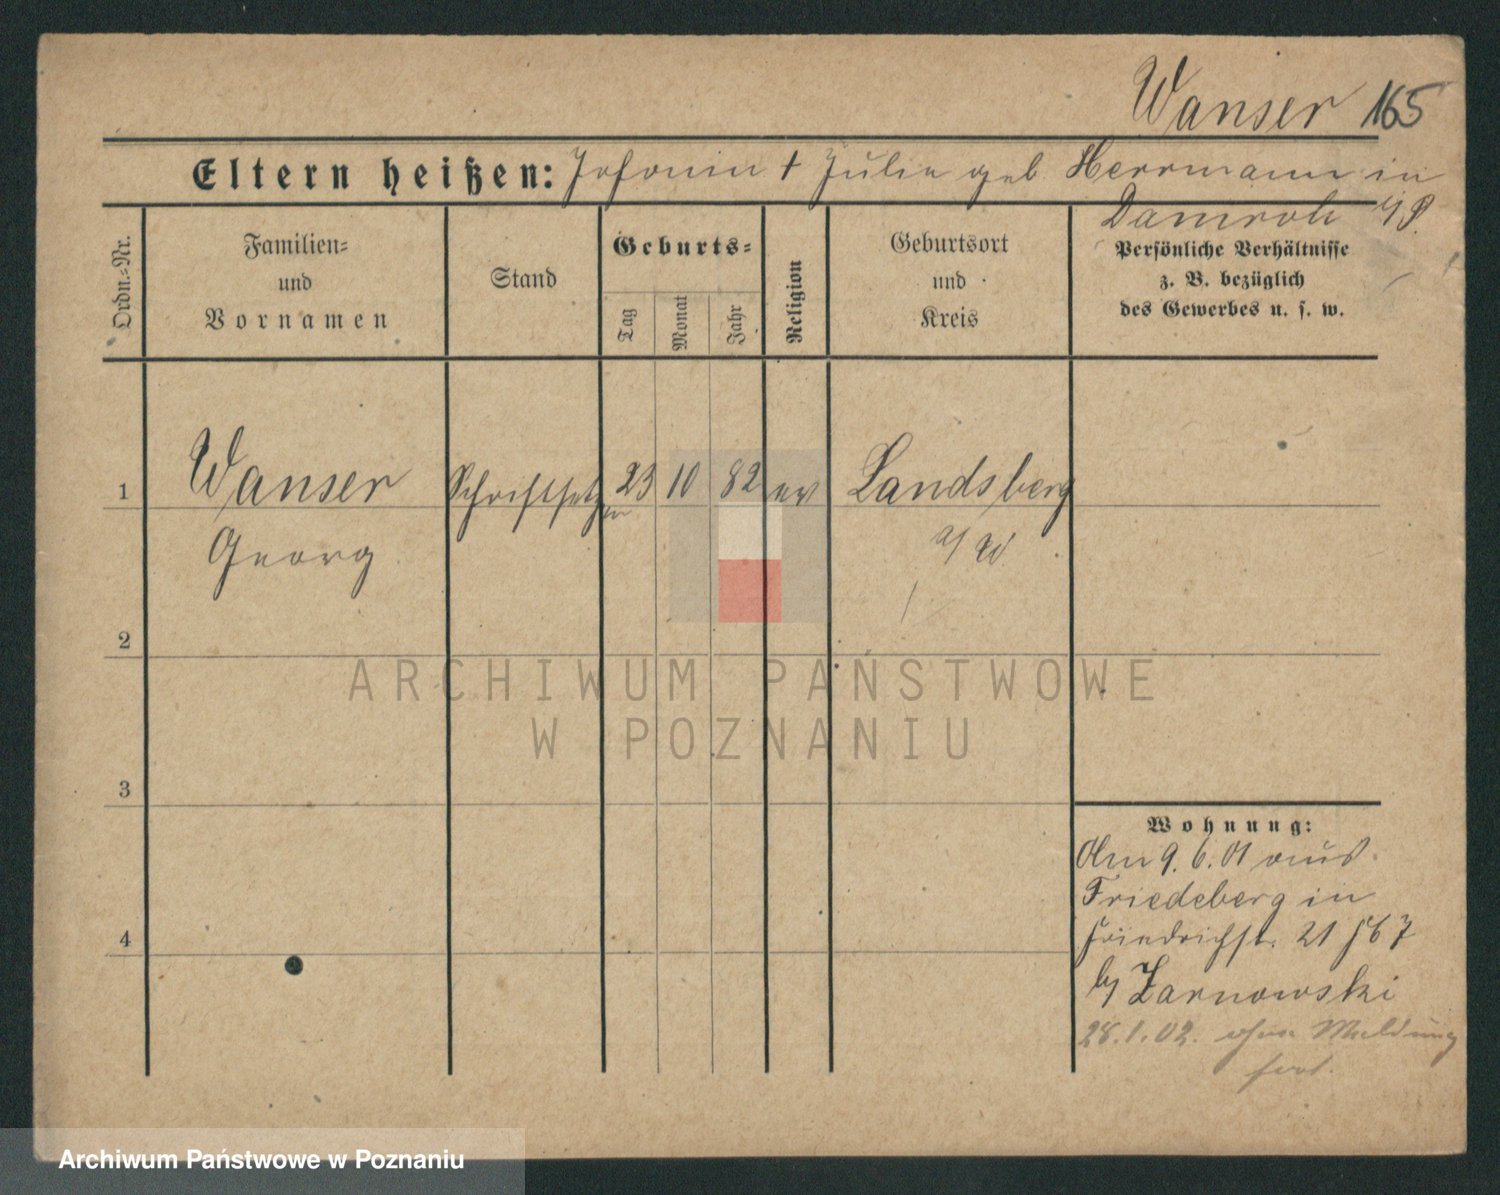 Wanser 165
Eltern heißen: Johann † Julie geb Herrmann in
Damroh
Ordn.=Nr.
Familien=
und
Vornamen
Stand
Geburts=
Tag
Monat
Jahr
Religion
Geburtsort
und
Kreis
Persönliche Verhältnisse
z. B. bezüglich
des Gewerbes u. s. w.
1 Wanser Schriftsetzer 23 10 82 ev Landsberg
Georg a/W
2
3
4
Wohnung:
Am 9. 6. 01 aus
Friedeberg in
Friedrichst. 21
Zarnowski
28.1.02. ohne Meldung
fort.
ARCHIWUM PAŃSTWOWE
W POZNANIU
Archiwum Państwowe w Poznaniu